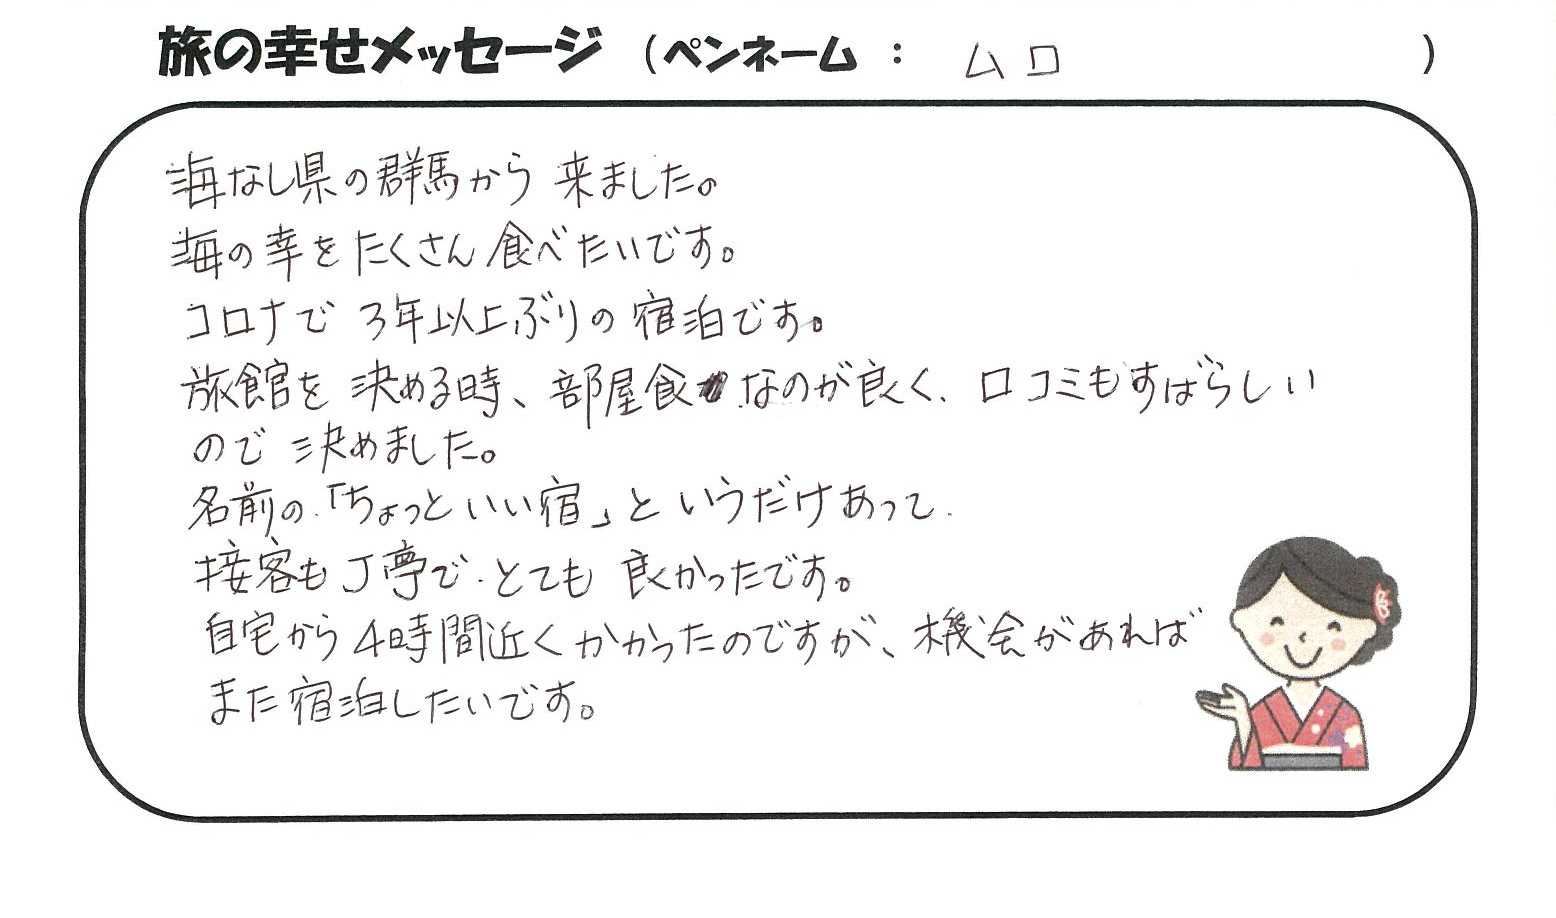 旅の幸せメッセージ （ペンネーム ： ムロ ）
海なし県の群馬から 来ました。
海の幸をたくさん食べたいです。
コロナで 3年以上ぶりの宿泊です。
旅館を 決める時、部屋食なのが良く、口コミもすばらしい
ので 決めました。
名前の、「ちょっといい宿」というだけあって、
接客も丁寧で、とても 良かったです。
自宅から4時間近くかかったのですが、機会があれば
また宿泊したいです。